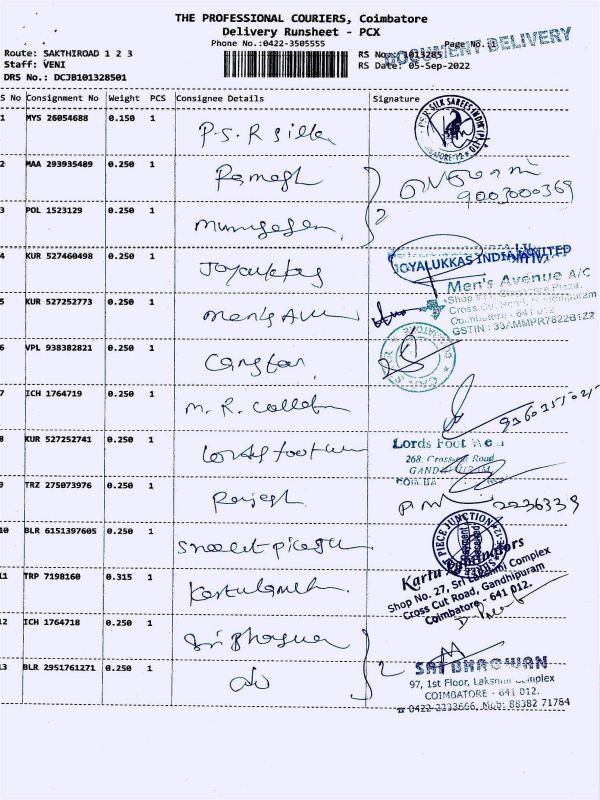 THE PROFESSIONAL COURIERS, Coimbatore
Delivery Runsheet - PCX
Phone No.:0422-3505555
Page No.:1
DOCUMENT DELIVERY
Route: SAKTHIROAD 1 2 3
RS No.: 1013285
Staff: VENI
RS Date: 05-Sep-2022
DRS No.: DCJB101328501
S No Consignment No Weight PCS Consignee Details Signature
1 MYS 26054688 0.150 1 P.S.R silks
2 MAA 293935489 0.250 1 Ramesh
9003000369
3 POL 1523129 0.250 1 Murugesan 2
4 KUR 527460498 0.250 1 Joyalukkas
JOYALUKKAS INDIA LIMITED
5 KUR 527252773 0.250 1 Men's Avenu
Men's Avenue A/C
Cross Cut Road, Gandhipuram
Coimbatore - 641 012
GSTIN : 33AMMPR7822B1Z2
6 VPL 938382821 0.250 1
7 ICH 1764719 0.250 1 M. R.
8 KUR 527252741 0.250 1 Lords foot
Lords Foot Wear
268, Cross Cut Road
9 TRZ 275073976 0.250 1 Rajesh
10 BLR 6151397605 0.250 1
PIECE JUNCTION
11 TRP 7198160 0.315 1
Shop No. 27, Sri Lakshmi Complex
Cross Cut Road, Gandhipuram
Coimbatore - 641 012.
12 ICH 1764718 0.250 1 Sri Bhagwan
13 BLR 2951761271 0.250 1 do 2
SRI BHAGWAN
97, 1st Floor, Lakshmi Complex
COIMBATORE - 641 012.
☎ 0422-2233666, Mob: 88382 71784